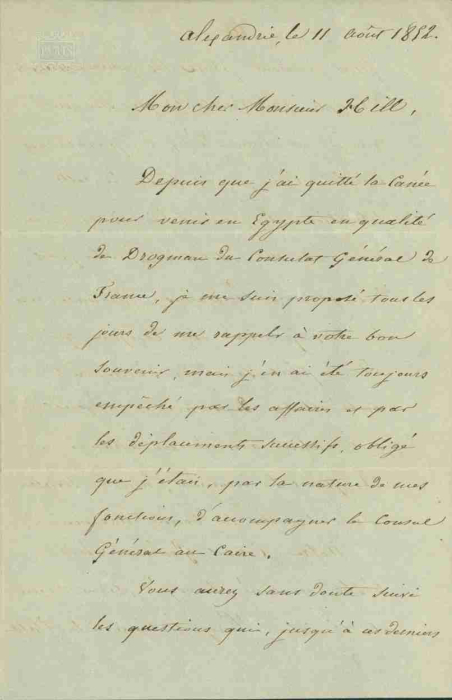 PARIS
Alexandrie, le 11 août 1852.
Mon cher Monsieur Hill,
Depuis que j'ai quitté la Canée
pour venir en Egypte en qualité
de Drogman du Consulat Général de
France, je me suis proposé tous les
jours de me rappeler à votre bon
souvenir, mais j'en ai été toujours
empêché par les affaires et par
les déplacements successifs, obligé
que j'étais, par la nature de mes
fonctions, d'accompagner le Consul
Général au Caire.
Vous aurez sans doute suivi
les questions qui, jusqu'à ces derniers